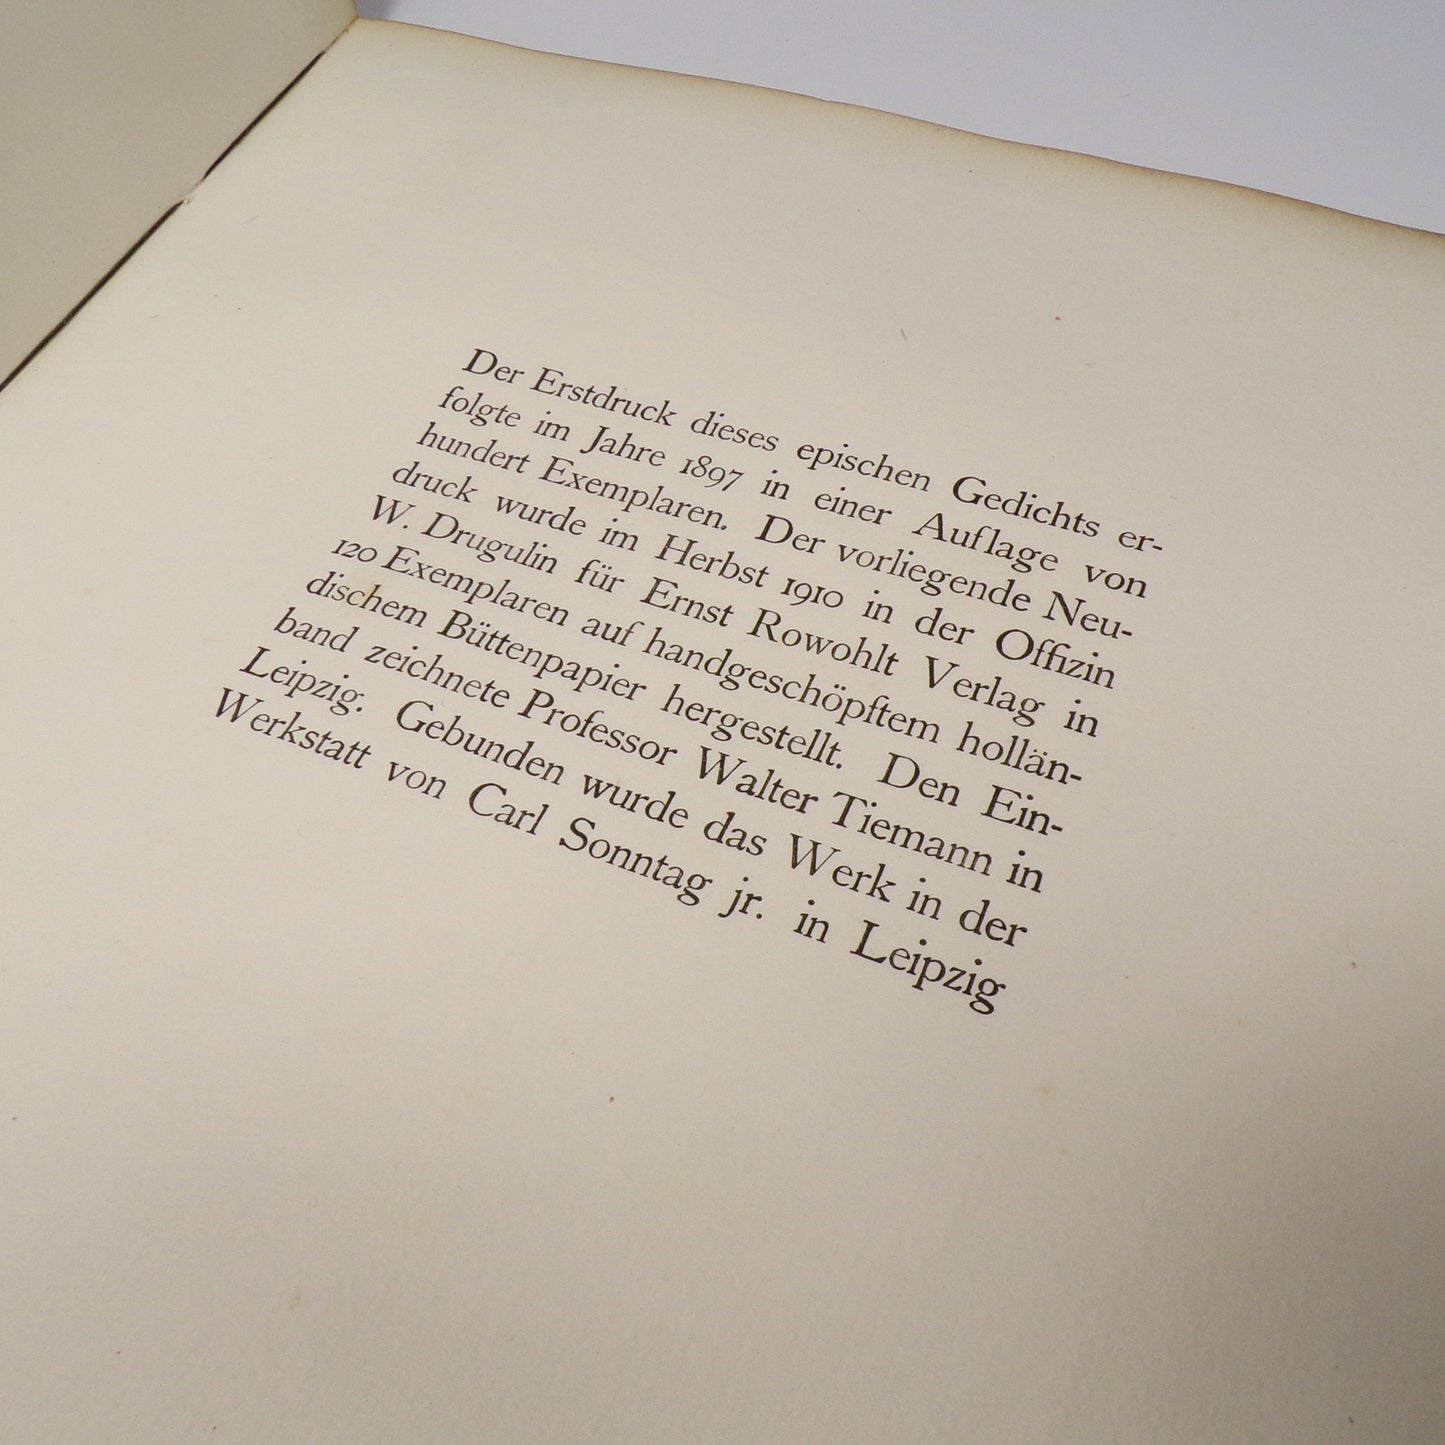 Der Erstdruck dieses epischen Gedichts er-
folgte im Jahre 1897 in einer Auflage von
hundert Exemplaren. Der vorliegende Neu-
druck wurde im Herbst 1910 in der Offizin
W. Drugulin für Ernst Rowohlt Verlag in
120 Exemplaren auf handgeschöpftem hollän-
dischem Büttenpapier hergestellt. Den Ein-
band zeichnete Professor Walter Tiemann in
Leipzig. Gebunden wurde das Werk in der
Werkstatt von Carl Sonntag jr. in Leipzig